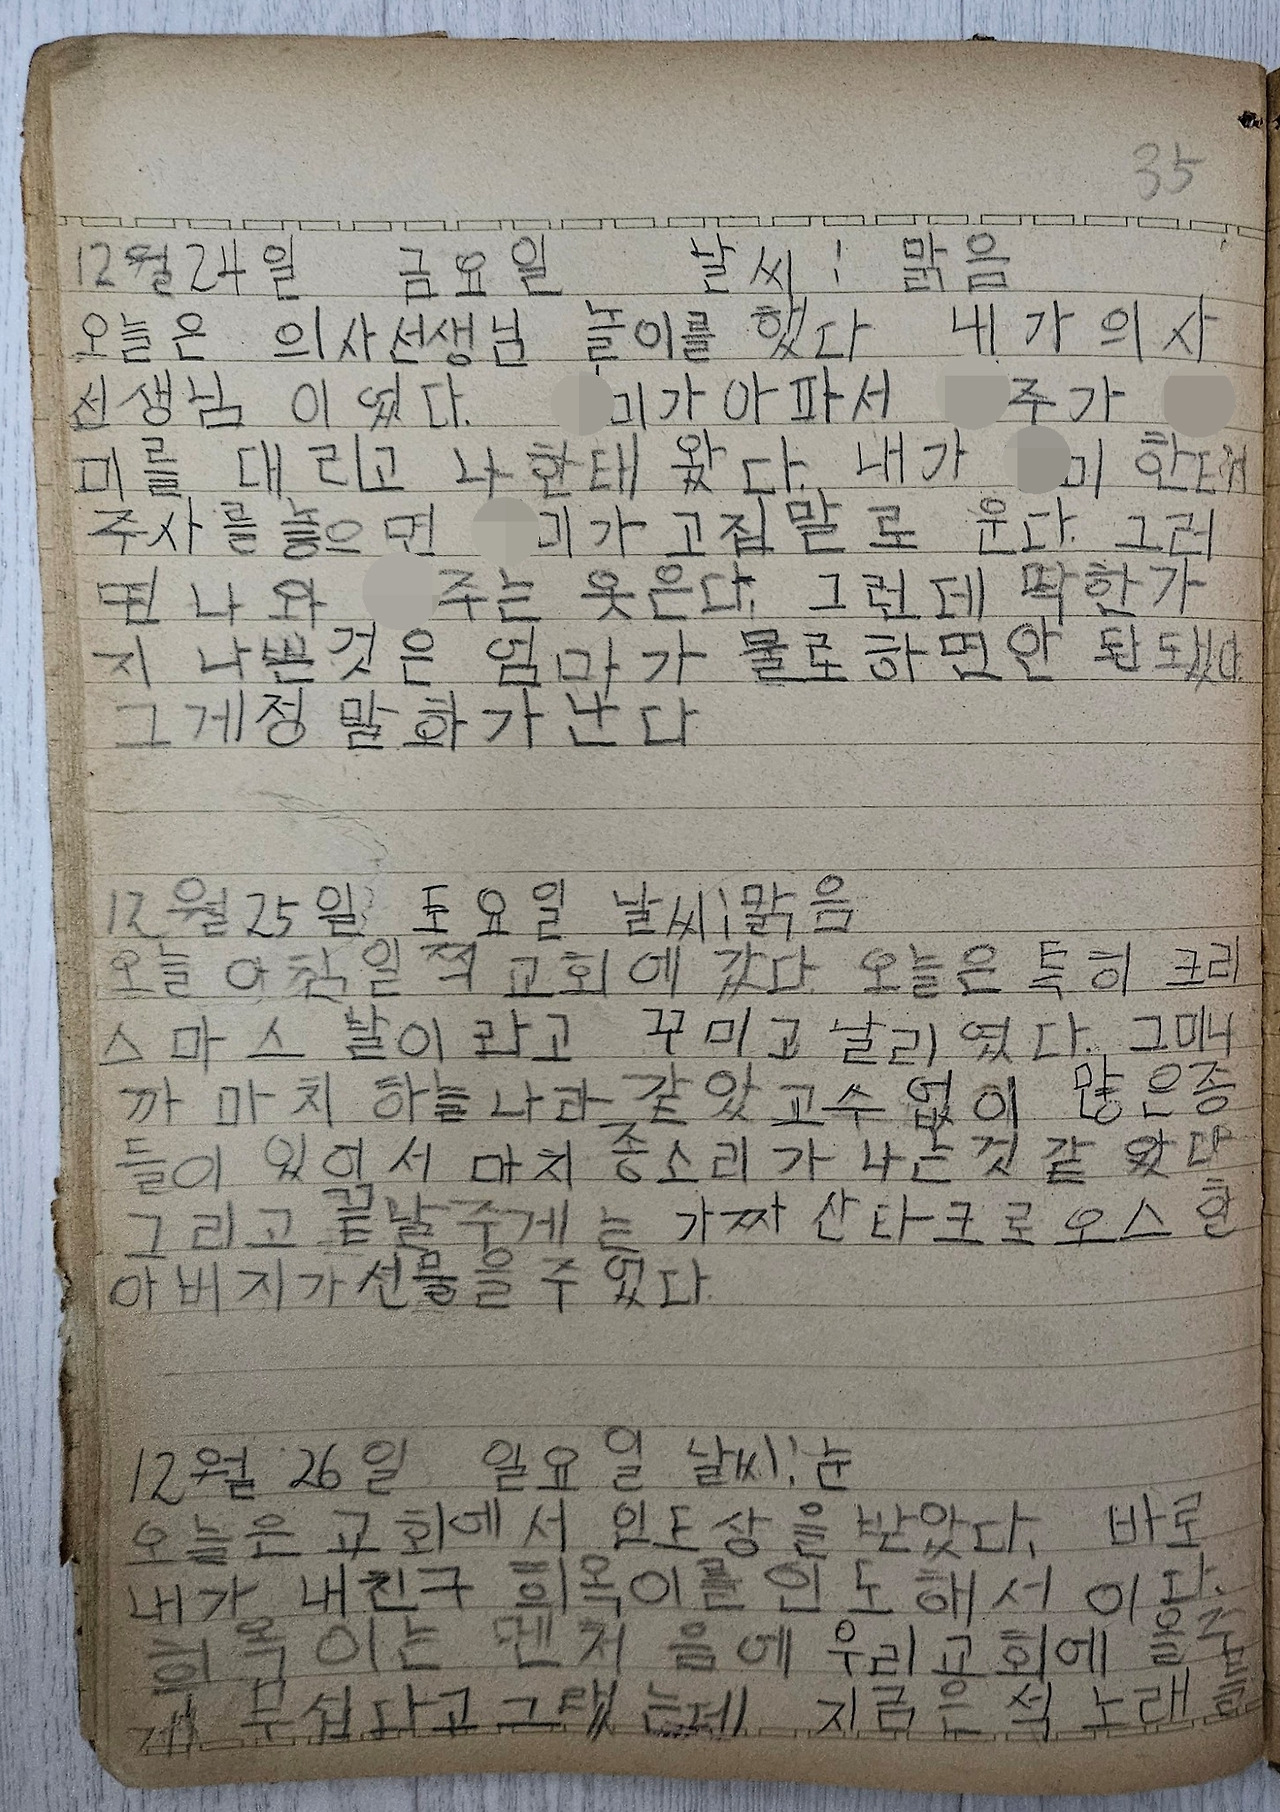 35
12월24일 금요일 날씨: 맑음
오늘은 의사선생님 놀이를 했다 내가 의사
선생님 이였다. 미가아파서 주가
미를 대리고 나한태 왔다. 내가 미 한테
주사를 놓으면 미가 고집말로 운다. 그러
면 나와 주는 웃은다. 그런데 딱한가
지 나쁜것은 엄마가 물로하면안
그게정말화가난다
12월25일 토요일 날씨:맑음
오늘 아침일찍 교회에 갔다. 오늘은 특히 크리
스마스 날이라고 꾸미고 날리였다. 그래니
까 마치 하늘나라 같았고수없이 많은종
들이 있어서 마치 종소리가 나는것 같았다
그리고 끝날쭈게는 가짜 산타크로오스 할
아버지가선물을 주었다.
12월 26일 일요일 날씨:눈
오늘은 교회에서 인도상을 받았다. 바로
내가 내친구 희옥이를 인도해서 이다.
희옥이는 멘처음에 우리교회에 올
무섭다고그랬는데 지금은 노래